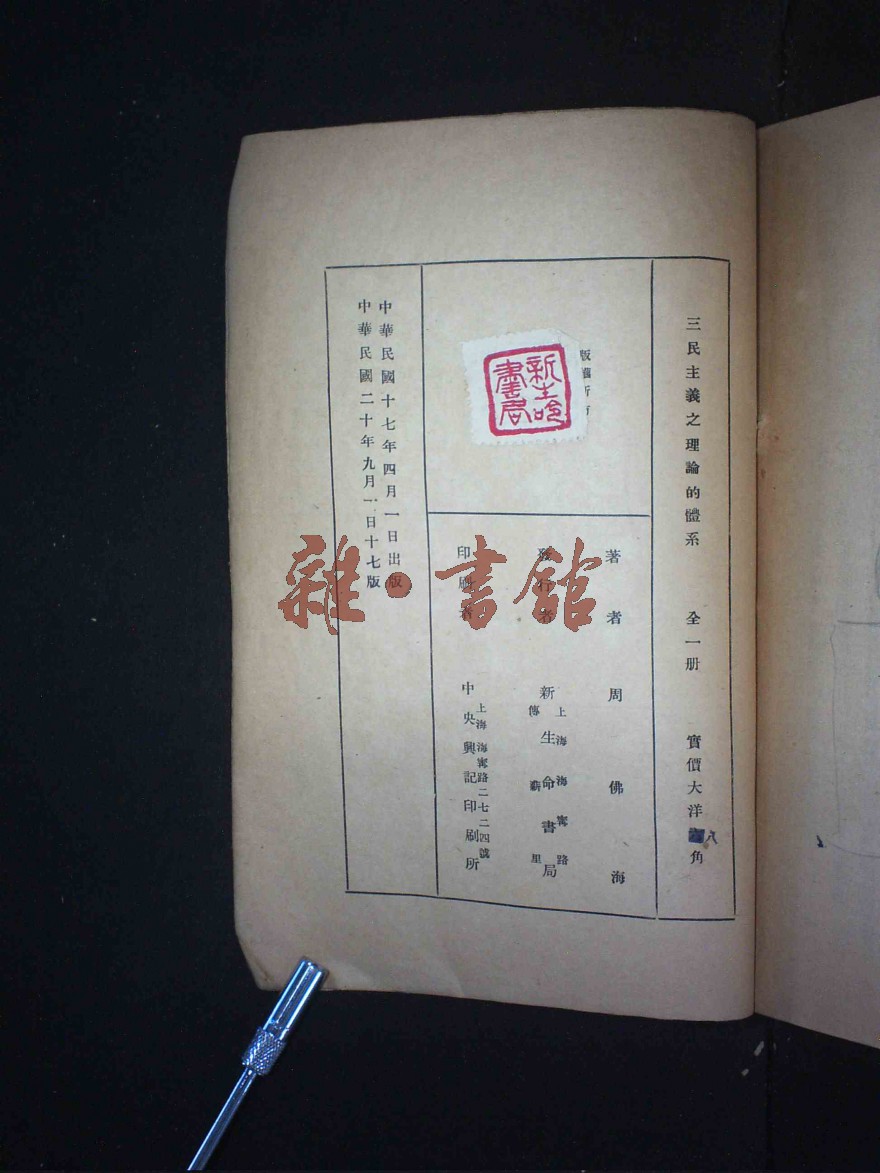 三民主義之理論的體系 全一册 實價大洋八角
版權所有
新生命書局
著者 周佛海
發行者 新生命書局
上海海寗路
傳薪里
印刷者 中央興記印刷所
上海海寗路二七二四號
中華民國十七年四月一日出版
中華民國二十年九月一日十七版
雜·書館